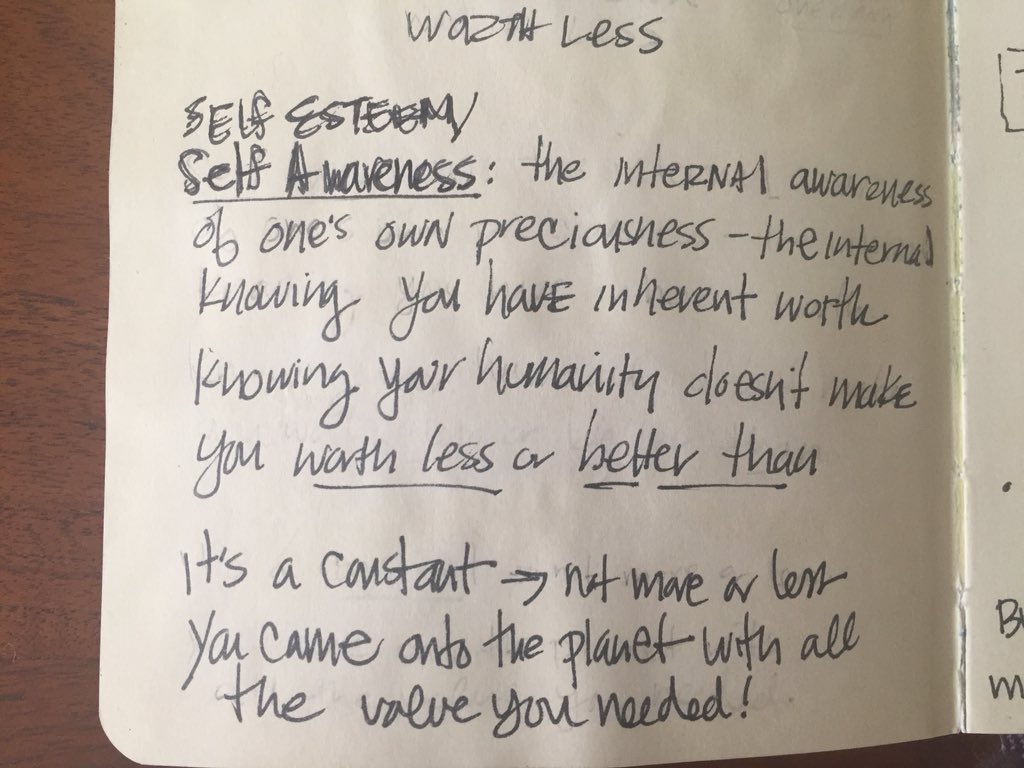 WORTH LESS
SELF ESTEEM/
Self Awareness: the INTERNAL awareness
of one's own preciousness - the internal
knowing you have inherent worth
knowing your humanity doesn't make
you worth less or better than
It's a constant → not more or less
You came onto the planet with all
the value you needed!
B
m